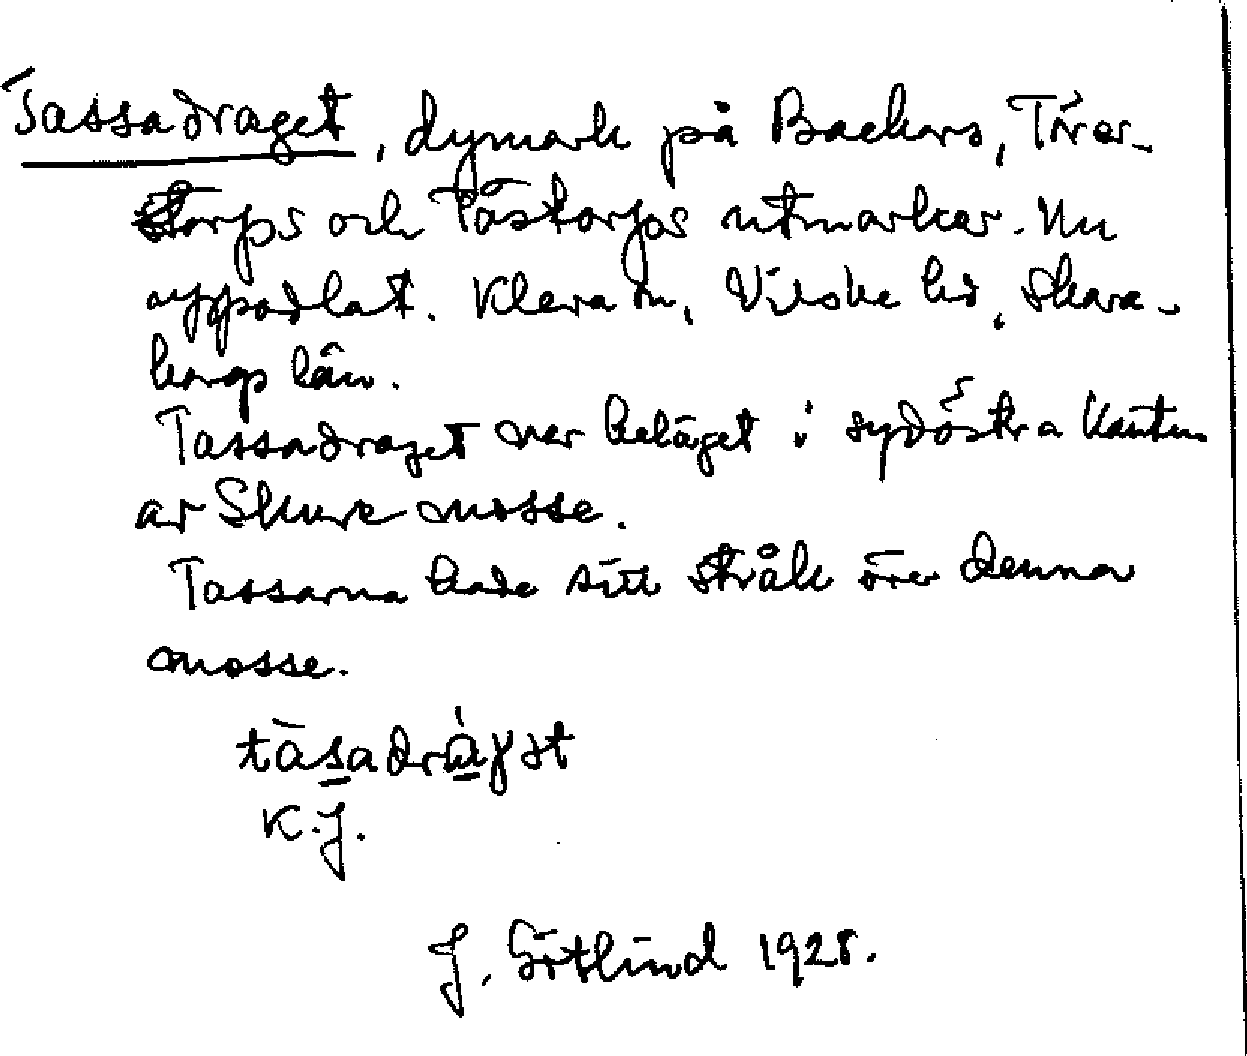 Tassadraget, dymark på Backers, Tiver-
storps och Tåstorps utmarker. Nu
uppodlat. Kleva sn, Vilske hd, Skara-
borgs län.
Tassadraget var beläget i sydöstra kanten
av Skure mosse.
Tassarna hade sitt stråk över denna
mosse.
K.J.
J. Götlind 1928.